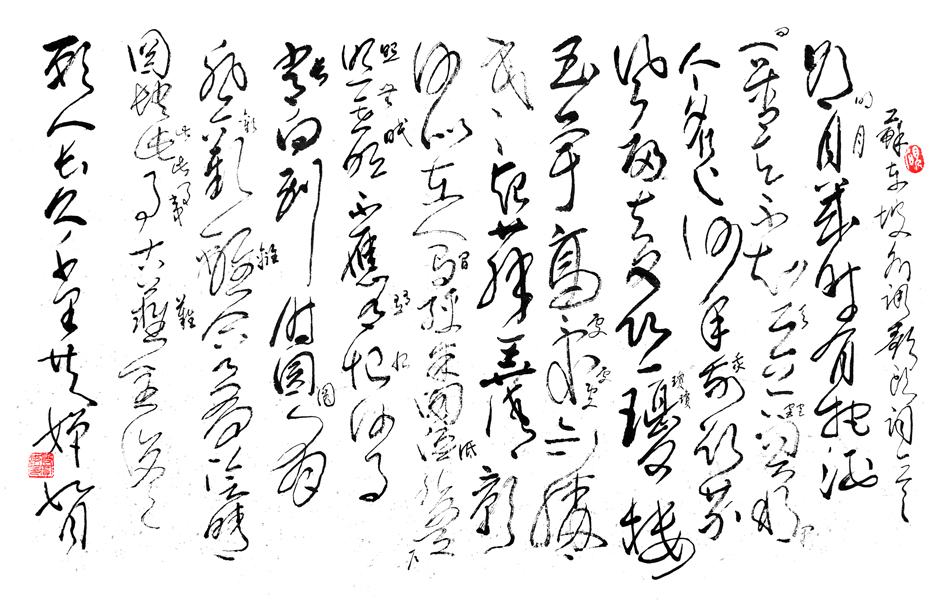 蘇東坡
明月幾時有把酒
問青天不知天上宮闕
今夕是何年我欲乘
風歸去又恐瓊樓
玉宇高處不勝
寒起舞弄清影
何似在人間轉朱閣低綺戶
照無眠不應有恨何事
長向別時圓人有
悲歡離合月有陰晴
圓缺此事古難全但
願人長久千里共嬋娟